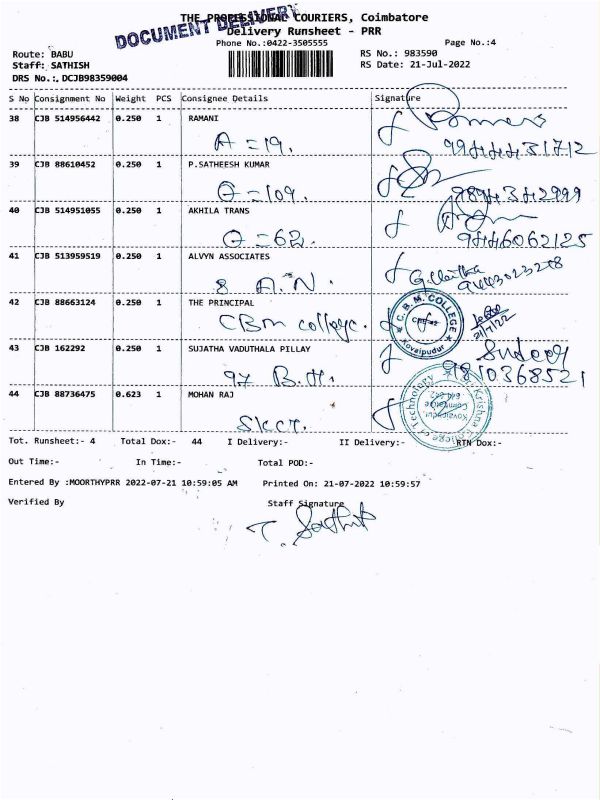 THE PROFESSIONAL COURIERS, Coimbatore
DOCUMENT DELIVERY
Delivery Runsheet - PRR
Phone No.:0422-3505555 Page No.:4
Route: BABU RS No.: 983590
Staff: SATHISH RS Date: 21-Jul-2022
DRS No.:.DCJB98359004
S No Consignment No Weight PCS Consignee Details Signature
38 CJB 514956442 0.250 1 RAMANI
A = 19.
39 CJB 88610452 0.250 1 P.SATHEESH KUMAR
= 109. 9894342999
40 CJB 514951055 0.250 1 AKHILA TRANS
= 62. 9446062125
41 CJB 513959519 0.250 1 ALVYN ASSOCIATES
8 A.N. 9443023278
42 CJB 88663124 0.250 1 THE PRINCIPAL
CBM college. C.B.M. COLLEGE Kovaipudur 21/7/22
43 CJB 162292 0.250 1 SUJATHA VADUTHALA PILLAY
97 B.H. 9810368521
44 CJB 88736475 0.623 1 MOHAN RAJ
Skct. Krishna College of Technology Kovaipudur, Coimbatore 641 042
Tot. Runsheet:- 4 Total Dox:- 44 I Delivery:- II Delivery:- RTN Dox:-
Out Time:- In Time:- Total POD:-
Entered By :MOORTHYPRR 2022-07-21 10:59:05 AM Printed On: 21-07-2022 10:59:57
Verified By Staff Signature
T. Sathish